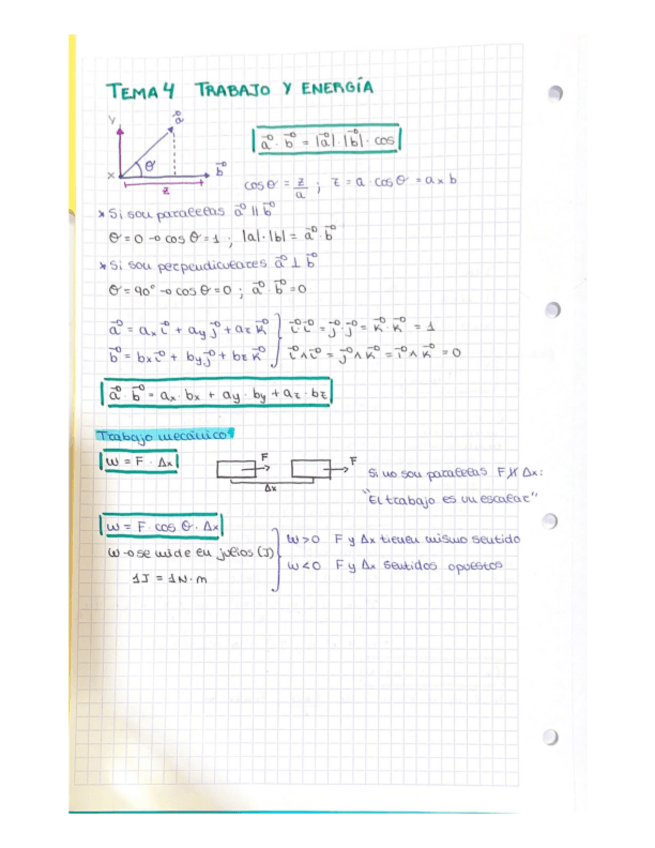 TEMA 4 TRABAJO Y ENERGÍA
y a⃗
θ
x b⃗
z
a⃗ · b⃗ = |a⃗| · |b⃗| · cos
cos θ = z/a ; z = a · cos θ = a x b
* Si son paralelas a⃗ || b⃗
θ = 0 → cos θ = 1 ; |a| · |b| = a⃗ · b⃗
* Si son perpendiculares a⃗ ⊥ b⃗
θ = 90° → cos θ = 0 ; a⃗ · b⃗ = 0
a⃗ = ax i⃗ + ay j⃗ + az k⃗ } i⃗ · i⃗ = j⃗ · j⃗ = k⃗ · k⃗ = 1
b⃗ = bx i⃗ + by j⃗ + bz k⃗ } i⃗ ∧ i⃗ = j⃗ ∧ k⃗ = i⃗ ∧ k⃗ = 0
a⃗ · b⃗ = ax · bx + ay · by + az · bz
Trabajo mecánico
W = F · Δx
F F
Δx
Si no son paralelas F ∦ Δx:
"El trabajo es un escalar"
W = F · cos θ · Δx
W → se mide en julios (J)
1J = 1N · m
W > 0 F y Δx tienen mismo sentido
W < 0 F y Δx sentidos opuestos